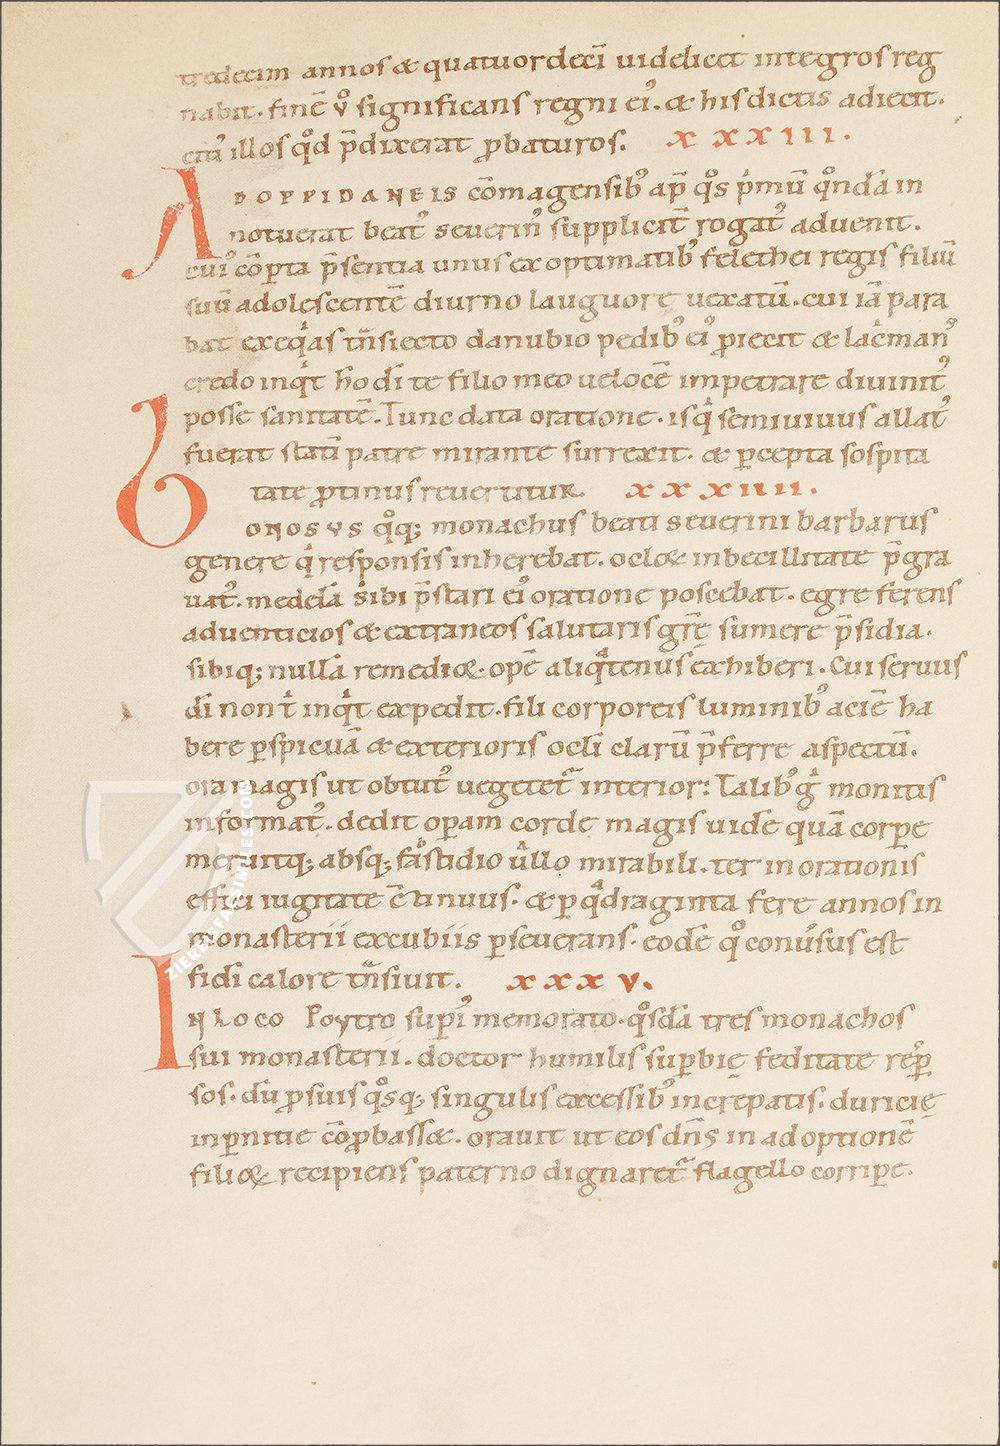 tredecim annos & quatuordecī uidelicet integros reg
nabit. finē v̊ significans regni ei᾿. & his dictis adiecit.
citi᾿ illos qd̊ p̄dixerat ꝓbaturos. xxxiii.
AB OPPIDANEIS cōmagensib᾿ ap̄ qͦs pͥmū qͦndā in
notuerat beat᾿ seuerin᾿ supplicit̄ rogat᾿ aduenit.
cui᾿ cōꝑta p̄sentia unus ex optimatib᾿ felethei regis filiū
suū adolescentē diurno lauguore uexatū. cui iā para
bat exeqͥas t̄nsiecto danubio pedib᾿ ei᾿ ꝓiecit & lacͥman᾿
credo inqͥt hō dī te filio meo uelocē impetrare diuinit᾿
posse sanitatē. Tunc data oratione. isqͥ semiuiuus allat᾿
fuerat statī patre mirante surrexit. & ꝑcepta sospita
tate ꝓtinus reuertitur. xxxiiii.
BONOSVS qͦq; monachus beati seuerini barbarus
genere qͥ responsis inherebat. ocl̊o& inbecillitate p̄gra
uat᾿. medelā sibi p̄stari ei᾿ oratione poscebat. egre ferens
aduenticios & extraneos salutaris gr̄ę sumere p̄sidia.
sibiq; nullā remedio&. opē aliqͣtenus exhiberi. Cui seruus
dī non tͥ inqͥt expedit. fili corporeis luminib᾿ aciē ha
bere ꝑspicuā & exterioris oclī clarū p̄ferre aspectū.
ora magis ut obtut᾿ uegetet̄ interior: Talib᾿ gͥ monitis
informat᾿. dedit oꝑam corde magis uide quā corꝑe
meruitq; absq; fastidio ullo mirabili. ter in orationis
effici iugitate c̄tinuus. & ꝑ qͣdraginta fere annos in
monasterii excubiis ꝑseuerans. eodē qͦ conūsus est
fidi calore t̄nsiuit. xxxv.
IN LOCO Poytro suꝑī memorato. qͦsdā tres monachos
sui monasterii. doctor humilis suꝑbię feditate reꝑ
sos. dū ꝓ suis qͦsq; singulis excessib᾿ increpatis. duricię
in ꝑnitie cōꝓbass&. orauit ut eos dn̄s in adoptionē
filio& recipiens paterno dignaret̄ flagello corriꝑe.
ZIEREIS FACSIMILES.COM